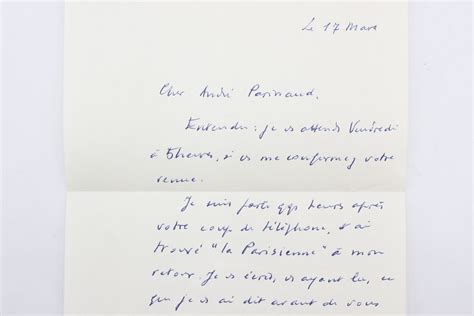 Le 17 Mars
Cher André Parinaud,
Entendu : je vs attends Vendredi
à 5 heures, si vs me confirmez votre
venue.
Je suis partie qqs heures après
votre coup de téléphone, & ai
trouvé "la Parisienne" à mon
retour. Je vs écris, vs ayant lu, ce
que je vs ai dit avant de vous